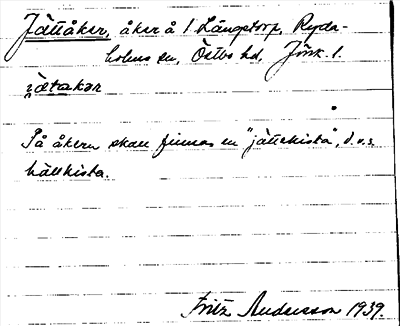 Jättåker, åker å 1 Långstorp, Ryda-
holms sn, Östbo hd, Jönk. l.
jätakər
På åkern skall finnas en "jättekista", d.v.s.
hällkista.
Fritz Andersson 1939.